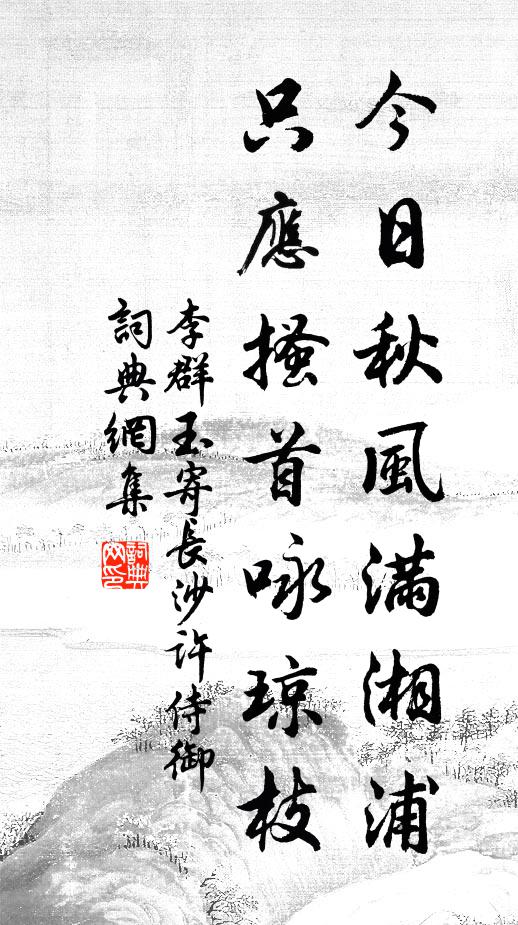 今日秋風滿湘浦
只應搔首咏琼枝
李群玉寄長沙許侍御
詞典網集
詞典网印